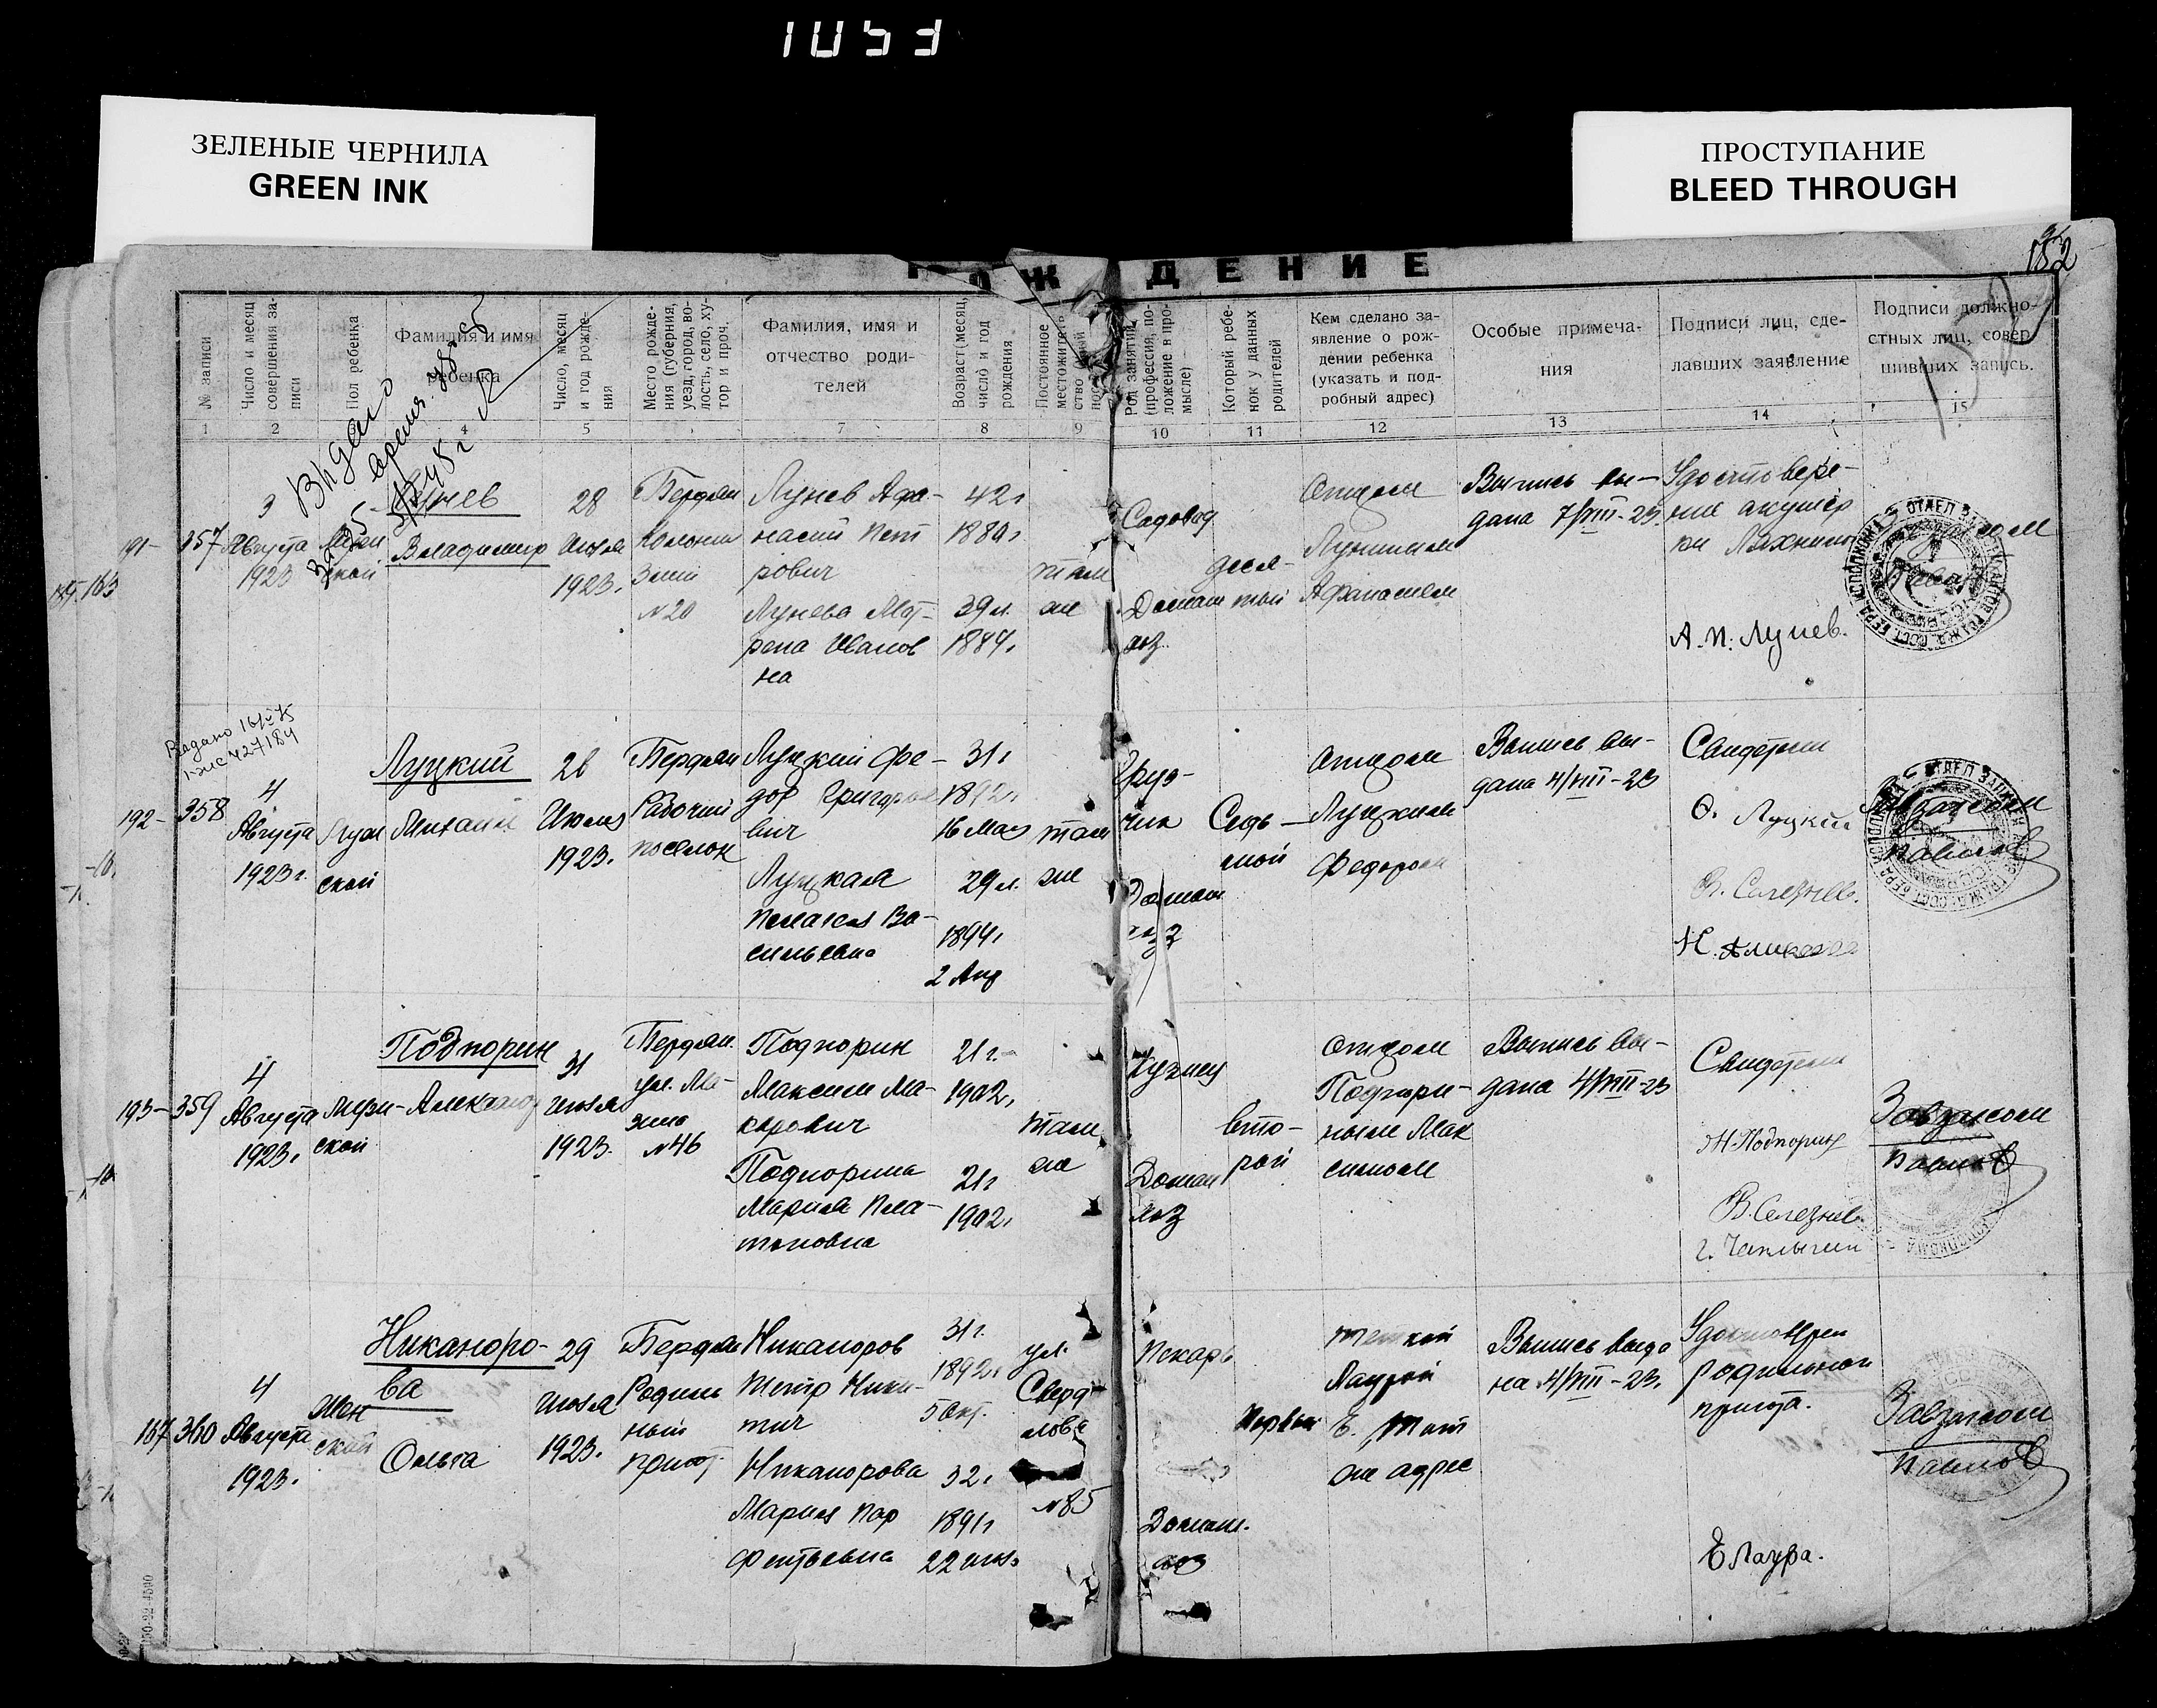 1053
ЗЕЛЕНЫЕ ЧЕРНИЛА
GREEN INK
ПРОСТУПАНИЕ
BLEED THROUGH
182
ДЕНИЕ
№ записи
Число и месяц совершения записи
Пол ребенка
Фамилия и имя
ребенка
Число, месяц и год рождения
Место рождения (губерния, уезд, город, волость, село, хутор и проч.
Фамилия, имя и
отчество роди-
телей
Возраст (месяц, число и год рождения
Постоянное
Род занятий (профессия, положение в промысле)
Который ребенок у данных родителей
Кем сделано за-
явление о рож-
дении ребенка
(указать и под-
робный адрес)
Особые примеча-
ния
Подписи лиц, сде-
лавших заявление
Подписи должно-
стных лиц, совер
шивших запись.
1 2 4 5 7 8 9 10 11 12 13 14 15
Выдано
191- 357
3
Августа
1923
Владимир
28
Июля
1923.
Бердян
Колония
№20
Лунев Афа-
насий Пет
рович
Лунева Мот-
рена Иванов
на
42г
1880г
39л.
1884г
там
же
Садовод
Домаш
хоз.
деся-
тый
Отцом
Луневым
Афанасием
Выпись вы-
дана 7/VIII-23.
Удостовере-
ние акушер
ки
А.П. Лунев.
Выдано
192- 358
4
Августа
1923г.
Муж
ской
Луцкий
Михаил
Июля
1923.
Бердян
Рабочий
поселок
Луцкий Фе-
дор Григорье
вич
Луцкая
Пелагея Ва-
сильевна
31г
1892г
16 Мая
29л.
1894г
2 Апр
там
же
Груз-
чик
Домаш
Седь-
мой
Отцом
Луцким
Федором
Выпись вы-
дана 4/VIII-23
Свидетели
Ф. Луцкий
В. Селезнев.
Завзагсом
Павлов
193- 359
4
Августа
1923г
мужской
Подпорин
Александр
31
Июля
1923.
Бердян.
ул. Ма-
зина
№46
Подпорин
Максим Ма-
карович
Подпорина
Мария Пла-
тоновна
21г.
1902г
21г
1902г
там
же
Кузнец
Домаш
хоз
вто-
рой
Отцом
Подпори-
ным Мак
симом
Выпись вы-
дана 4/VIII-23
Свидетели
М.Подпорин
В.Селезнев
Г. Чаплыгин
Завзагсом
Павлов
167 360
4
Августа
1923.
Жен
ский
Никаноро-
ва
Ольга
29
Июля
1923.
Бердян
Родиль
ный
приют
Никаноров
Петр Ники-
тич
Никанорова
Мария Пар
фентьевна
31г.
1892г
5 Окт.
32г
1891г
22 июл.
ул.
Сверд-
лова
№85
Пекарь
Домаш.
хоз
Первый
теткой
Лаурой
Е. Тот
же адрес
Выпись выда
на 4/VIII-23.
Удостоверен
родильного
приюта.
Е Лаура.
Завзагсом
Павлов